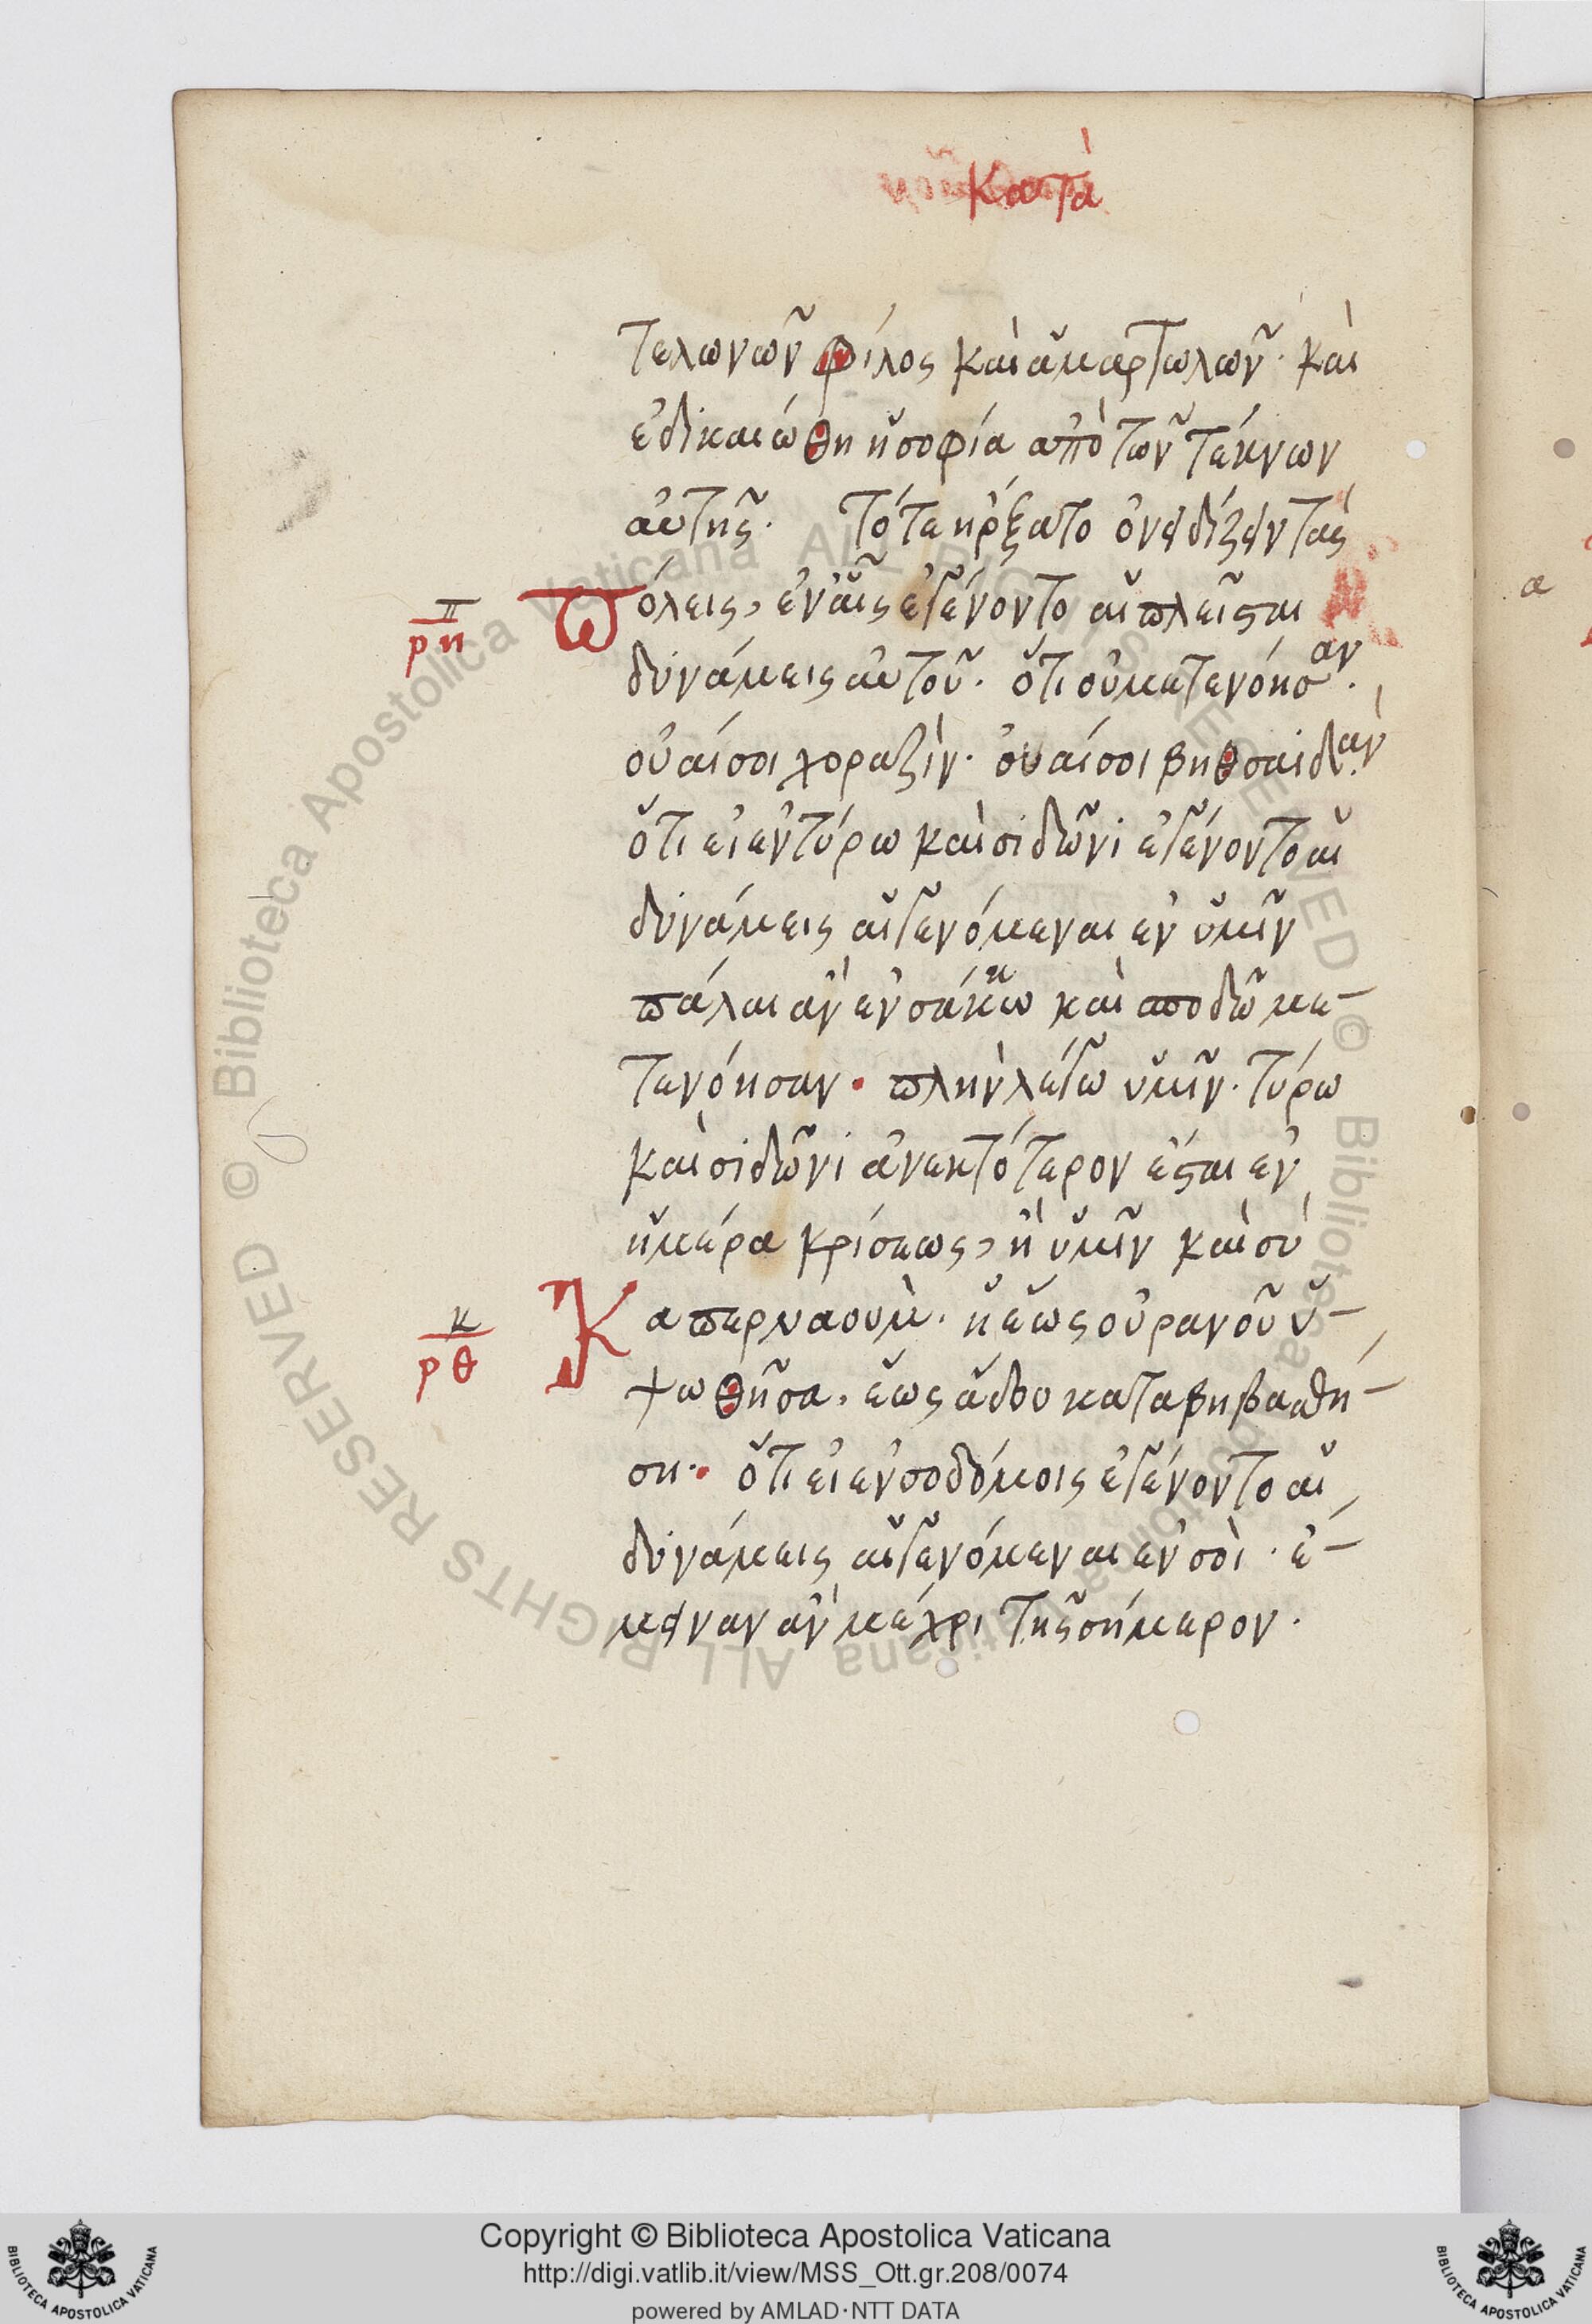 Κατὰ
τελωνῶν φίλος καὶ ἁμαρτωλῶν· καὶ
ἐδικαιώθη ἡ σοφία ἀπὸ τῶν τέκνων
αὐτῆς. Τότε ἠρξατο ὀνειδίζειν τὰς
πόλεις, ἐν αἷς ἐγένοντο αἱ πλεῖσται
δυνάμεις αὐτοῦ. ὅτι οὐ μετενόησαν.
οὐαί σοι χοραζὶν· ὀυαί σοι βηθσαιδὰν.
ὅτι εἰ ἐν τύρω καὶ σιδῶνι ἐγένοντο αἱ
δυνάμεις αἱ γενόμεναι ἐν ὑμῖν
πάλαι ἂν ἐν σάκκω καὶ σποδῶ με-
τενόησαν. πλὴν λέγω ὑμῖν· τύρω
καὶ σιδῶνι ἀνεκτότερον ἔσται ἐν
ἡμέρα κρίσεως, ἢ ὑμῖν καὶ σὺ
π
ρη
Καπερναοὺμ. ἡ ἕως οὐρανοῦ ὑ-
ψωθῆσα, ἕως ἅδου καταβηβασθή-
ση. ὅτι εἰ ἐν σοδόμοις ἐγένοντο αἱ
δυνάμεις αἱ γενόμεναι ἐν σοὶ. ἔ-
μειναν ἂν μέχρι τῆς σήμερον.
κ
ρθ
α
Copyright © Biblioteca Apostolica Vaticana
http://digi.vatlib.it/view/MSS_Ott.gr.208/0074
powered by AMLAD·NTT DATA
© Biblioteca Apostolica Vaticana ALL RIGHTS RESERVED © Biblioteca Apostolica Vaticana ALL RIGHTS RESERVED
BIBLIOTECA APOSTOLICA VATICANA
BIBLIOTECA APOSTOLICA VATICANA